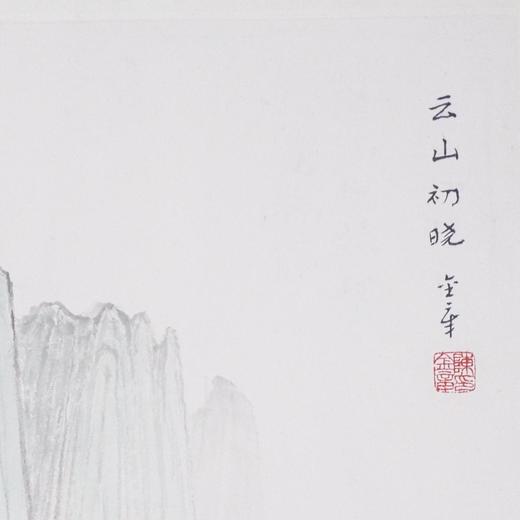 云山初晓
金章